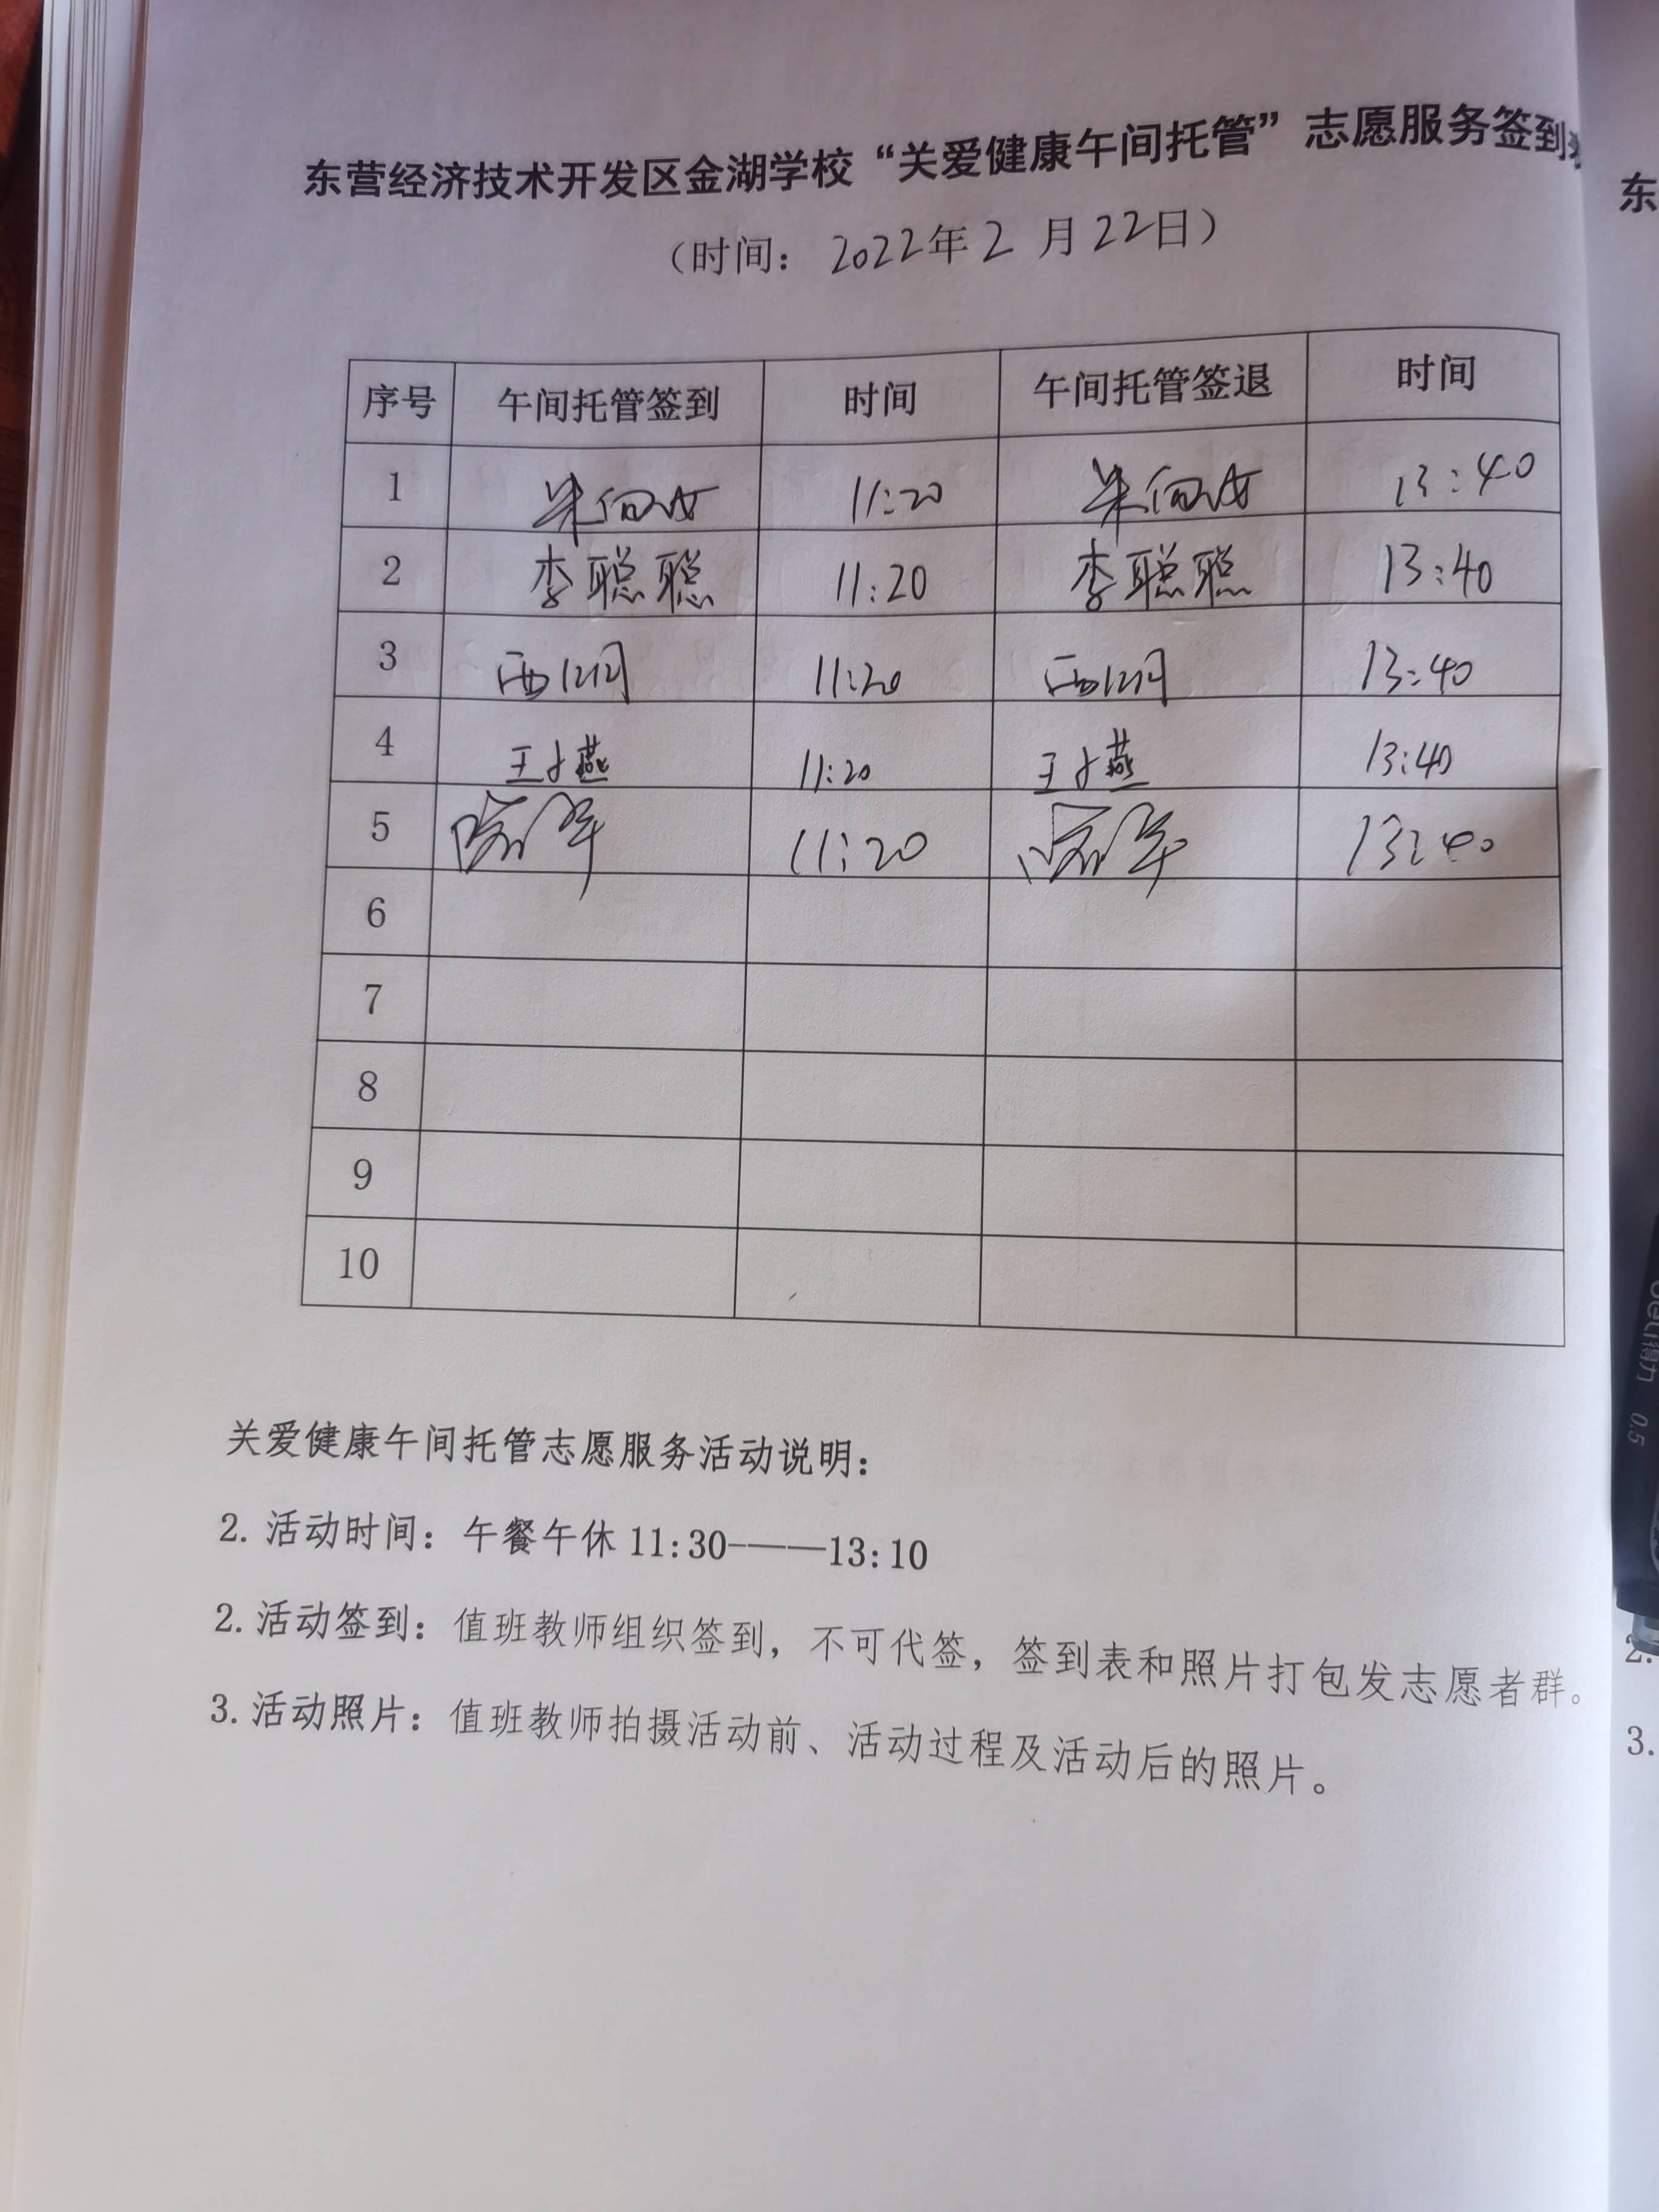 东营经济技术开发区金湖学校“关爱健康午间托管”志愿服务签到
（时间：2022年2月22日）
序号 午间托管签到 时间 午间托管签退 时间
1 11:20 13:40
2 李聪聪 11:20 李聪聪 13:40
3 11:20 13:40
4 王 燕 11:20 王 燕 13:40
5 11:20 13:40
6
7
8
9
10
关爱健康午间托管志愿服务活动说明：
2. 活动时间：午餐午休 11:30-——13:10
2. 活动签到：值班教师组织签到，不可代签，签到表和照片打包发志愿者群。
3. 活动照片：值班教师拍摄活动前、活动过程及活动后的照片。
东
deli得力 0.5
2.
3.